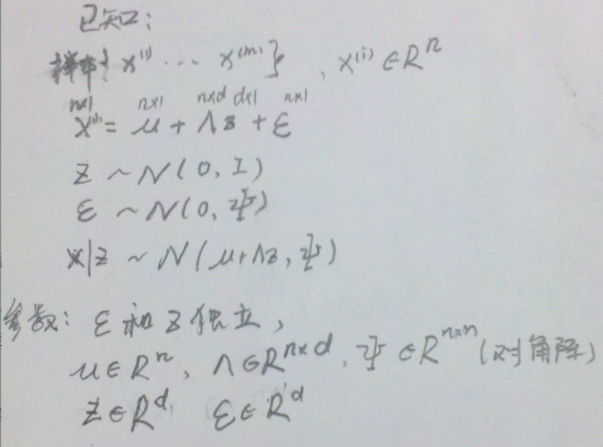 已知:
样本{ x⁽¹⁾ ... x⁽ᵐ⁾}, x⁽ⁱ⁾ ∈ Rⁿ
n×1 n×1 n×d d×1 n×1
x⁽ⁱ⁾ = μ + Λz + ε
z ~ N(0, I)
ε ~ N(0, Ψ)
x|z ~ N(μ+Λz, Ψ)
参数: ε和z独立,
μ∈Rⁿ, Λ∈Rⁿˣᵈ, Ψ∈Rⁿˣⁿ(对角阵)
z∈Rᵈ ε∈Rᵈ